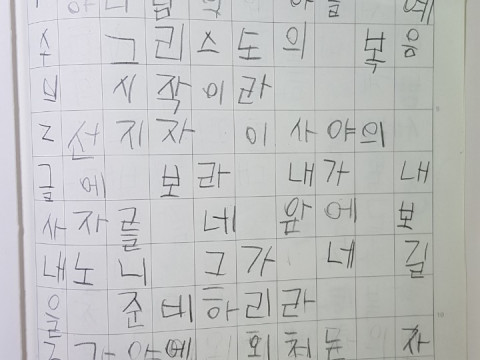 아들 예
수 그리스도의 복음
의 시작이라
2 선지자 이사야의
글에 보라 내가 내
사자를 네 앞에 보
내노니 그가 네 길
을 준비하리라
자